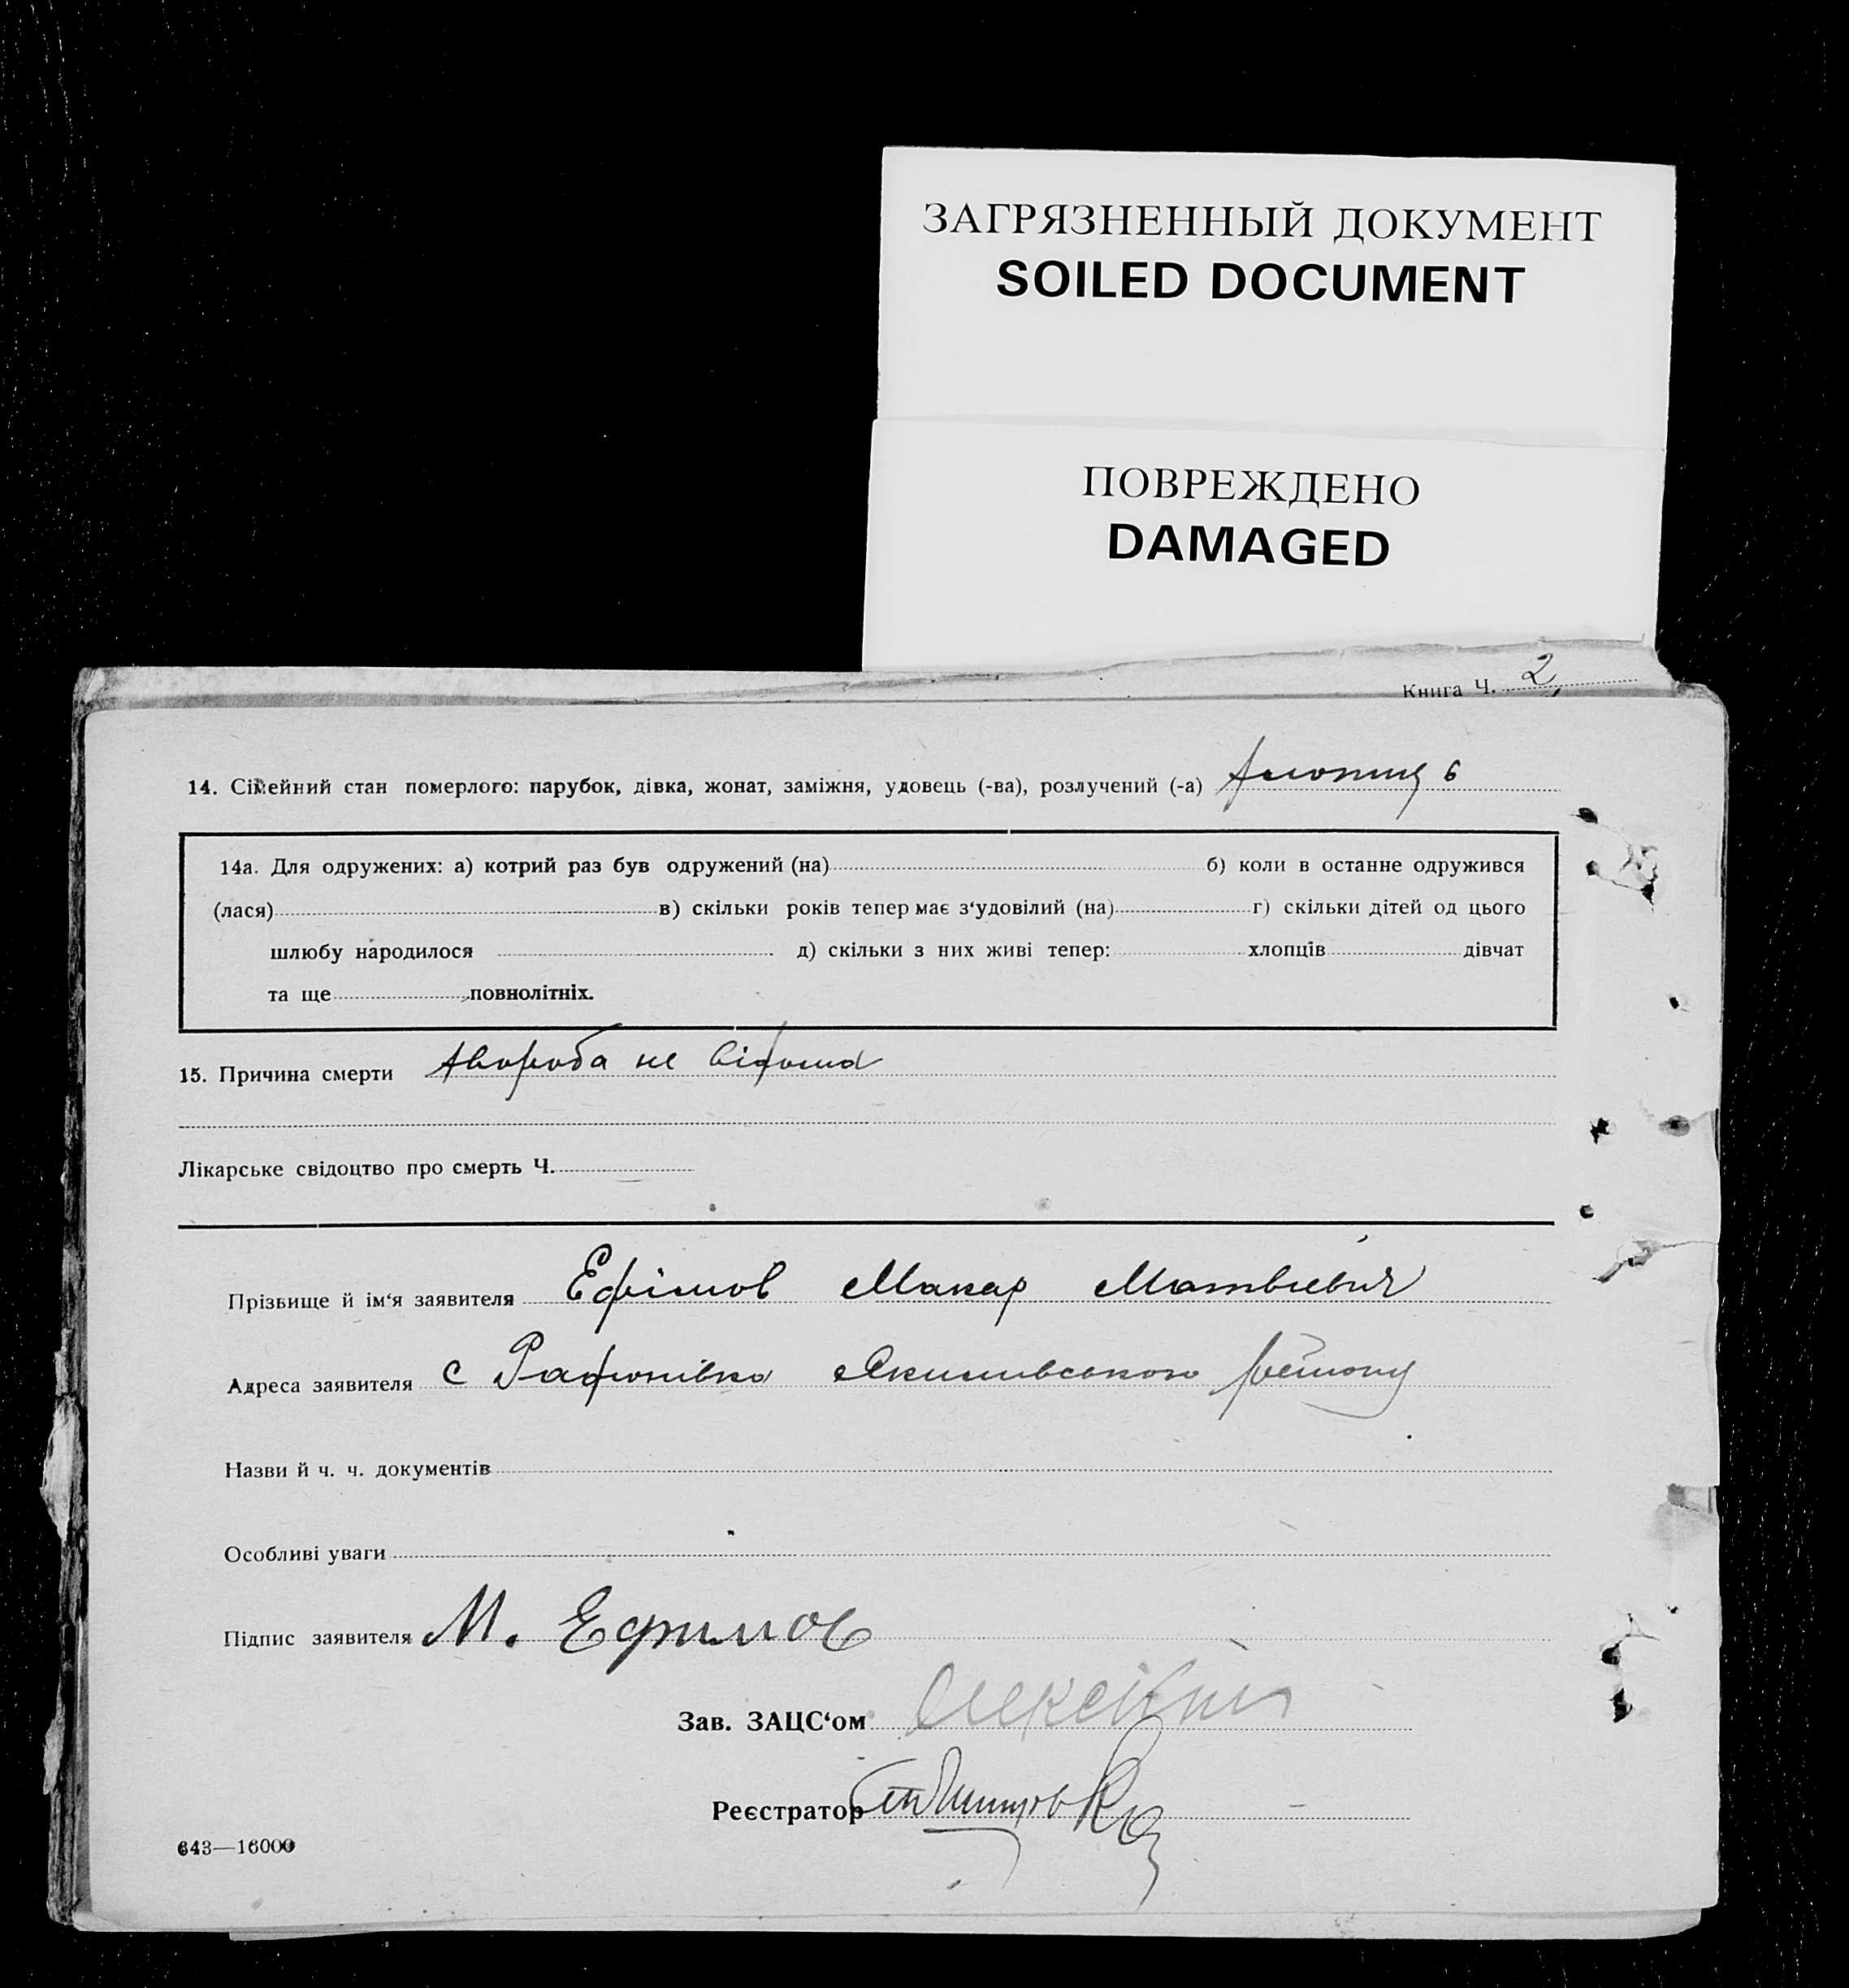 ЗАГРЯЗНЕННЫЙ ДОКУМЕНТ
SOILED DOCUMENT
ПОВРЕЖДЕНО
DAMAGED
Книга Ч. 2
14. Сімейний стан померлого: парубок, дівка, жонат, заміжня, удовець (-ва), розлучений (-а)
14а. Для одружених: а) котрий раз був одружений (на) б) коли в останнє одружився
(лася) в) скільки років тепер має з‘удовілий (на) г) скільки дітей од цього
шлюбу народилося д) скільки з них живі тепер: хлопців дівчат
та ще повнолітніх.
15. Причина смерти Хвороба не відома
Лікарське свідоцтво про смерть Ч.
Прізвище й ім'я заявителя Ефімов Макар Матвієвич
Адреса заявителя с Радионівка Якимівського району
Назви й ч. ч. документів
Особливі уваги
Підпис заявителя М. Ефимов
Зав. ЗАЦС‘ом
Реєстратор
643—16000